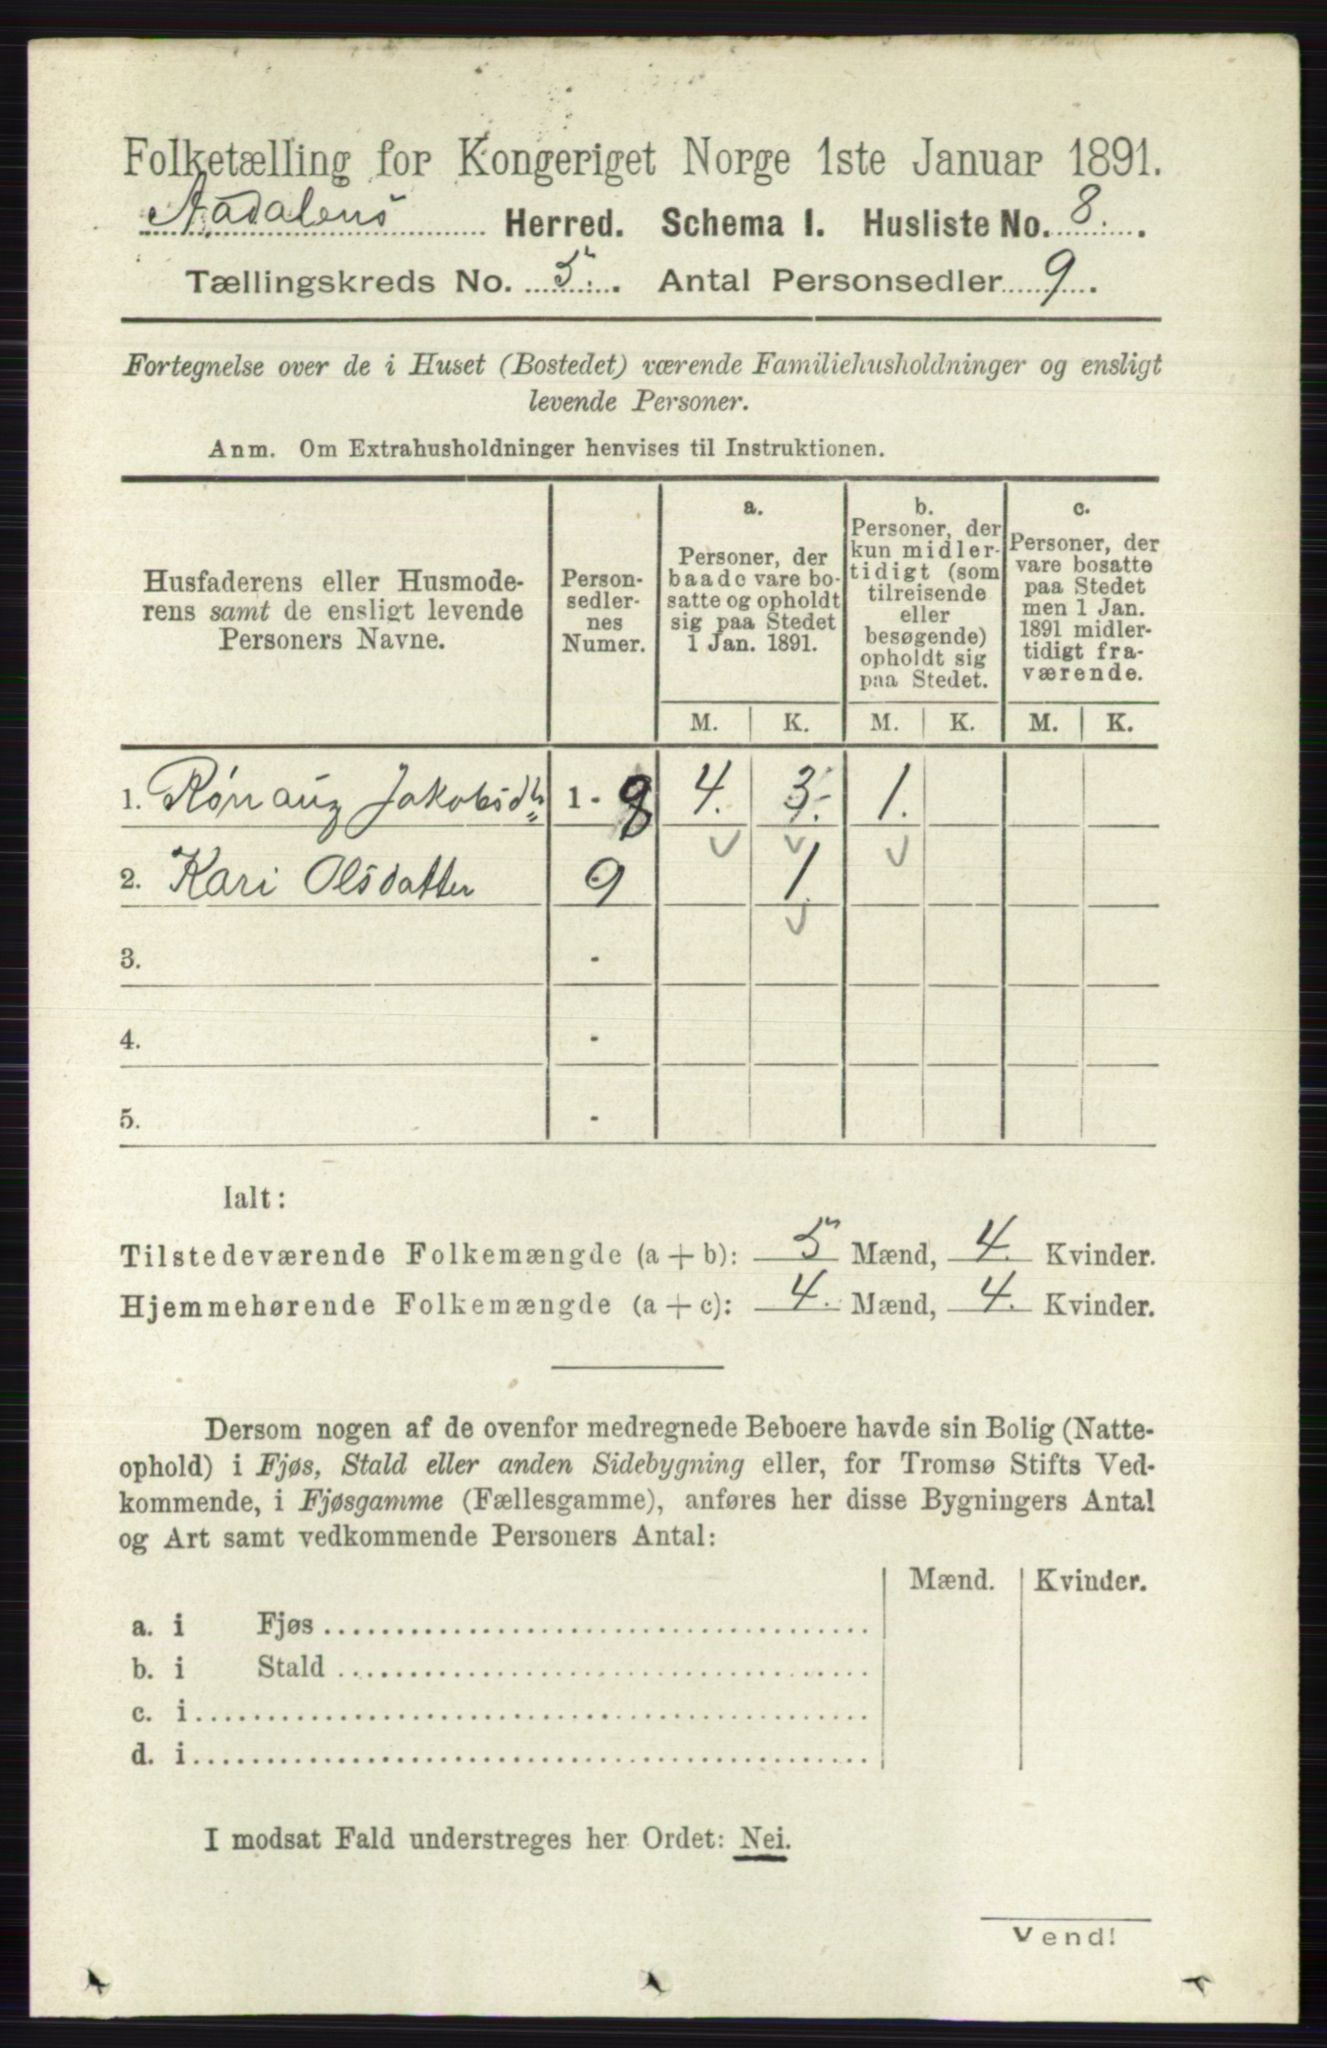 Folketælling for Kongeriget Norge 1ste Januar 1891.
Aadalens Herred. Schema I. Husliste No. 8.
Tællingskreds No. 5. Antal Personsedler 9.
Fortegnelse over de i Huset (Bostedet) værende Familiehusholdninger og ensligt
levende Personer.
Anm. Om Extrahusholdninger henvises til Instruktionen.
Husfaderens eller Husmode-
rens samt de ensligt levende
Personers Navne.
Person-
sedler-
nes
Numer.
a.
Personer, der
baade vare bo-
satte og opholdt
sig paa Stedet
1 Jan. 1891.
b.
Personer, der
kun midler-
tidigt (som
tilreisende
eller
besøgende)
opholdt sig
paa Stedet.
c.
Personer, der
vare bosatte
paa Stedet
men 1 Jan.
1891 midler-
tidigt fra-
værende.
M. K. M. K. M. K.
1. Rønnaug Jakobsdtr 1 - 8 4. 3. 1.
2. Kari Olsdatter 9 1.
3. -
4. -
5. -
Ialt:
Tilstedeværende Folkemængde (a + b): 5 Mænd, 4. Kvinder.
Hjemmehørende Folkemængde (a + c): 4. Mænd, 4. Kvinder.
Dersom nogen af de ovenfor medregnede Beboere havde sin Bolig (Natte-
ophold) i Fjøs, Stald eller anden Sidebygning eller, for Tromsø Stifts Ved-
kommende, i Fjøsgamme (Fællesgamme), anføres her disse Bygningers Antal
og Art samt vedkommende Personers Antal:
Mænd. Kvinder.
a. i Fjøs
b. i Stald
c. i
d. i
I modsat Fald understreges her Ordet: Nei.
Vend!